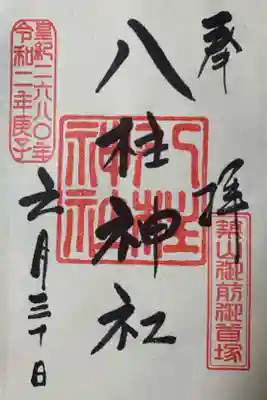 奉拝
築山御前御首塚
八柱神社
八柱神社
皇紀二六八〇年
令和二年庚子
六月三十日